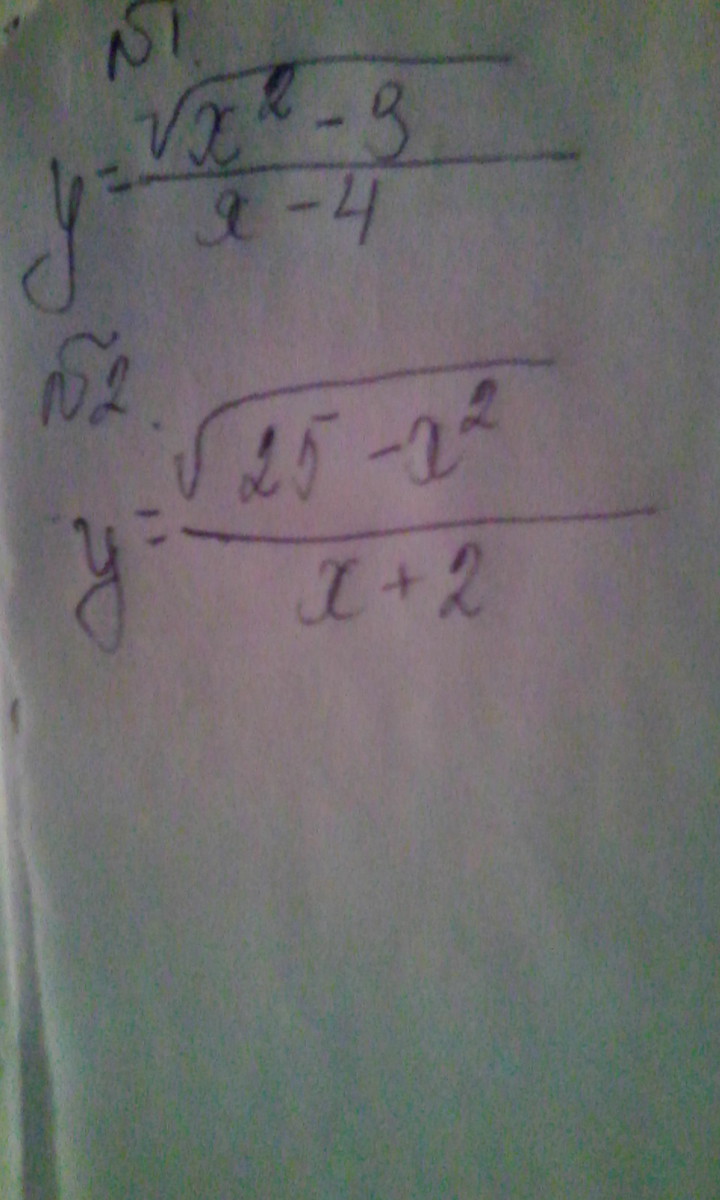 №1.
y = √(x² - 9) / (x - 4)
№2.
y = √(25 - x²) / (x + 2)